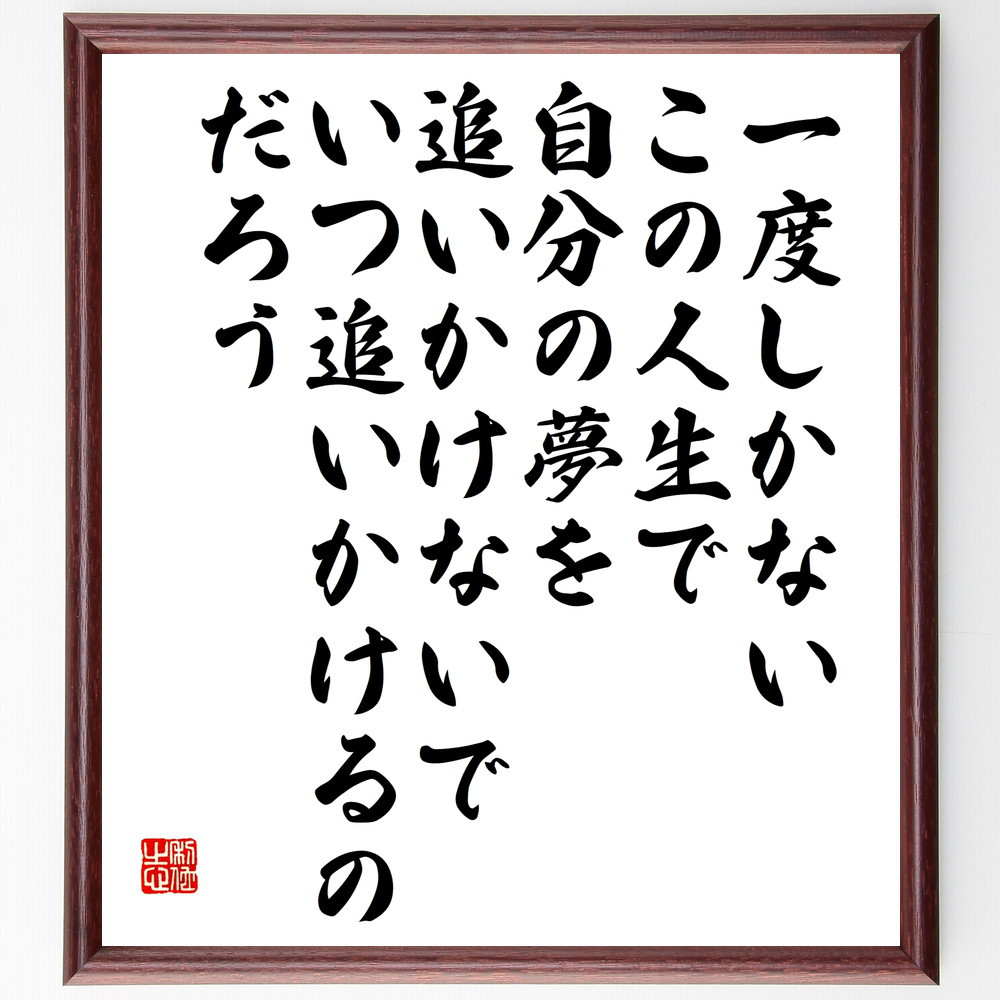 一度しかない
この人生で
自分の夢を
追いかけないで
いつ追いかけるの
だろう